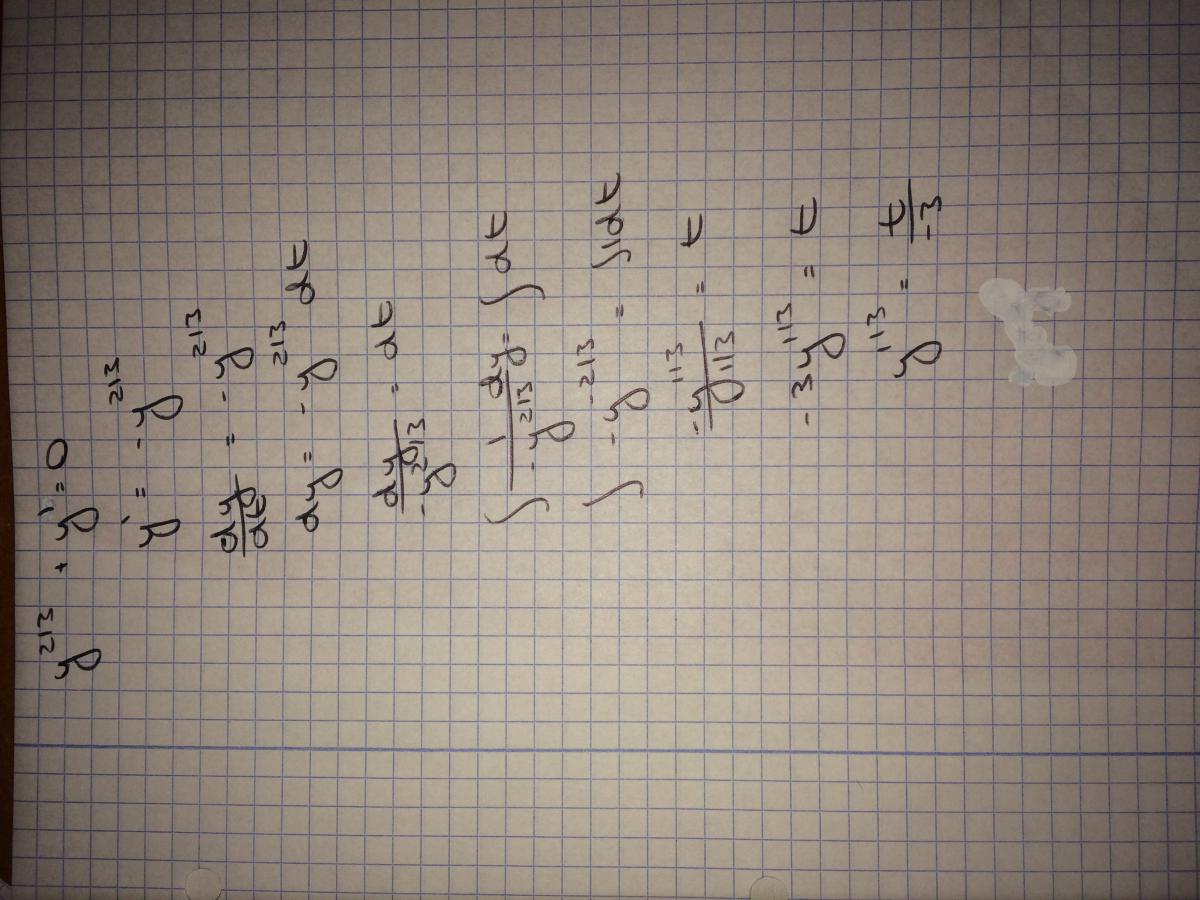 y^{2/3} + y' = 0
y' = -y^{2/3}
\frac{dy}{dt} = -y^{2/3}
dy = -y^{2/3} dt
\frac{dy}{-y^{2/3}} = dt
\int \frac{1}{-y^{2/3}} dy = \int dt
\int -y^{-2/3} = \int 1dt
\frac{-y^{1/3}}{y^{1/3}} = t
-3y^{1/3} = t
y^{1/3} = \frac{t}{-3}